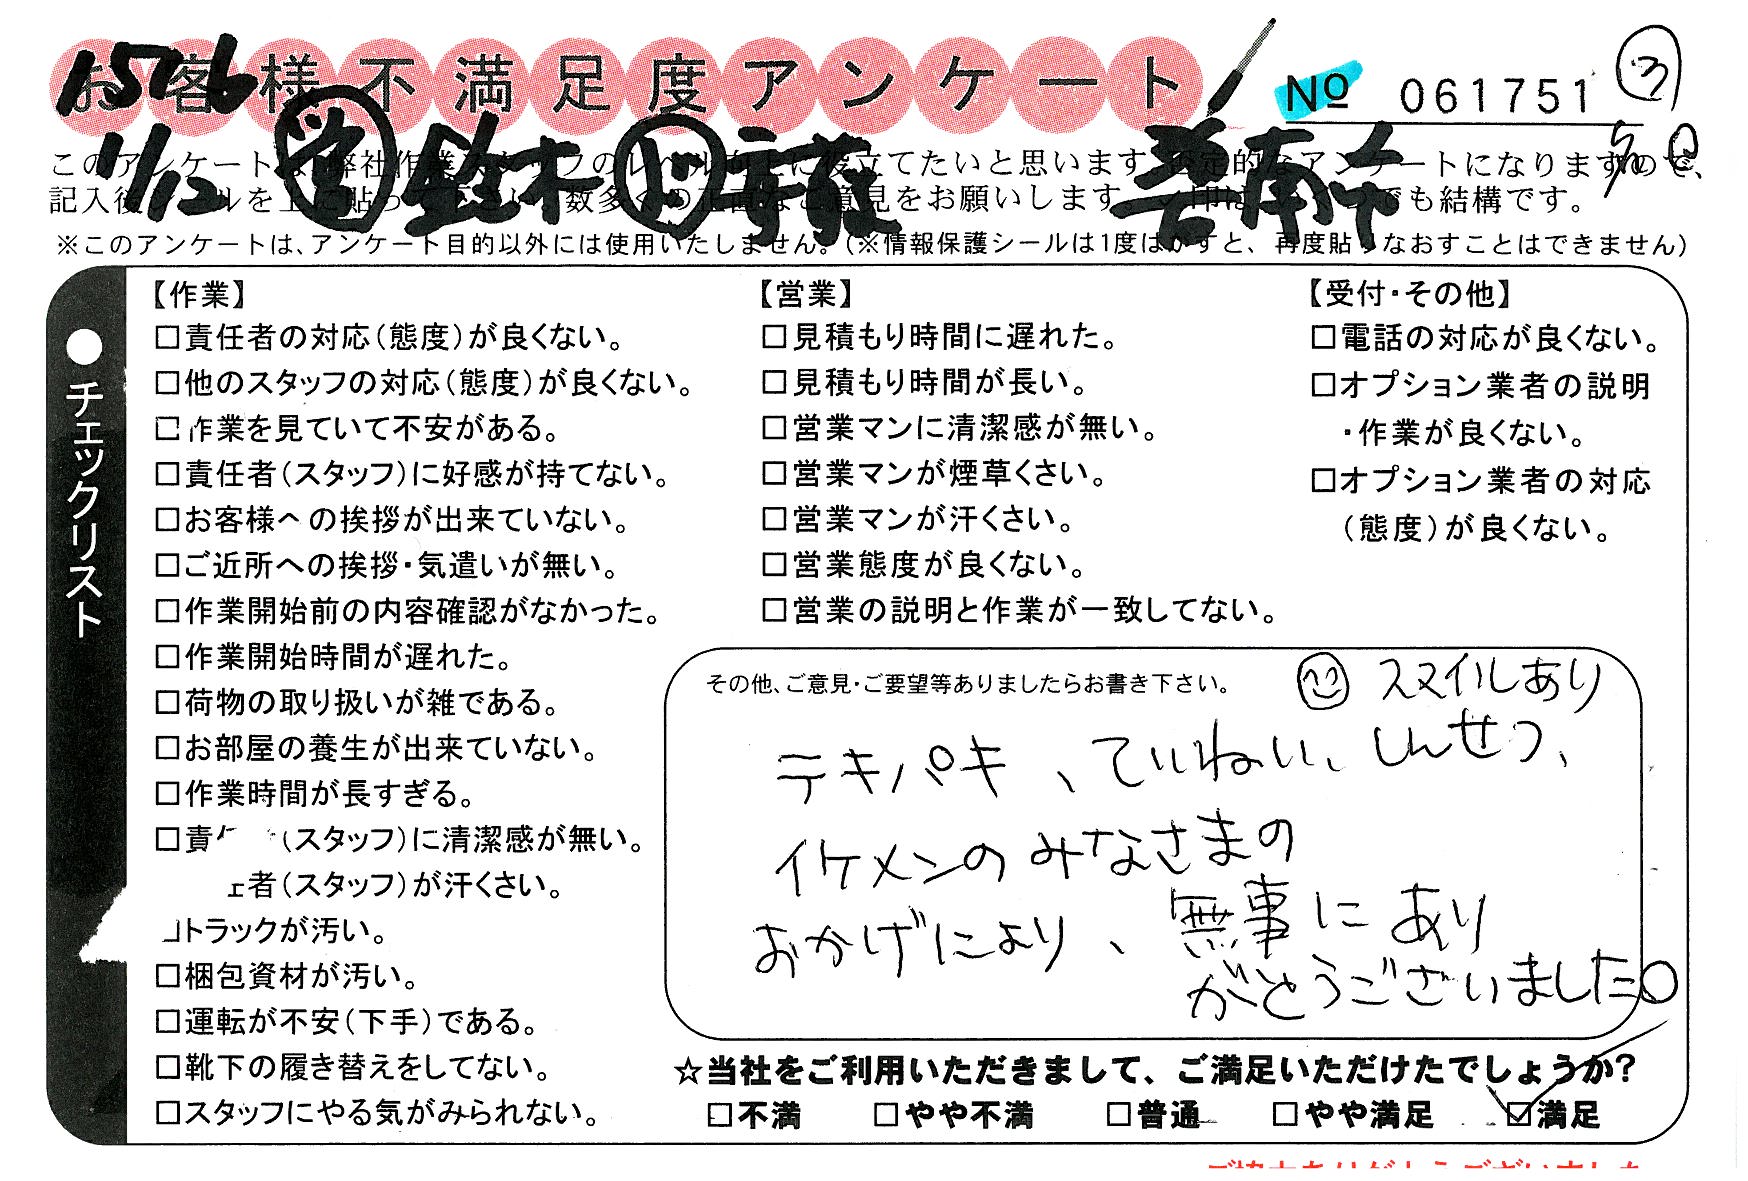 お客様不満足度アンケート
№ 061751
1576
1/12
鈴木
このアンケートは、弊社作業スタッフのレベル向上に役立てたいと思います。否定的なアンケートになりますので、
記入後シールを上に貼って下さい。数多くの正直なご意見をお願いします。
※このアンケートは、アンケート目的以外には使用いたしません。(※情報保護シールは1度はがすと、再度貼りなおすことはできません)
●チェックリスト
【作業】
□責任者の対応(態度)が良くない。
□他のスタッフの対応(態度)が良くない。
□作業を見ていて不安がある。
□責任者(スタッフ)に好感が持てない。
□お客様への挨拶が出来ていない。
□ご近所への挨拶・気遣いが無い。
□作業開始前の内容確認がなかった。
□作業開始時間が遅れた。
□荷物の取り扱いが雑である。
□お部屋の養生が出来ていない。
□作業時間が長すぎる。
□責 (スタッフ)に清潔感が無い。
者(スタッフ)が汗くさい。
□トラックが汚い。
□梱包資材が汚い。
□運転が不安(下手)である。
□靴下の履き替えをしてない。
□スタッフにやる気がみられない。
【営業】
□見積もり時間に遅れた。
□見積もり時間が長い。
□営業マンに清潔感が無い。
□営業マンが煙草くさい。
□営業マンが汗くさい。
□営業態度が良くない。
□営業の説明と作業が一致してない。
【受付・その他】
□電話の対応が良くない。
□オプション業者の説明
・作業が良くない。
□オプション業者の対応
(態度)が良くない。
その他、ご意見・ご要望等ありましたらお書き下さい。
スマイルあり
テキパキ、ていねい、しんせつ、
イケメンのみなさまの
おかげにより、無事にあり
がとうございました。
☆当社をご利用いただきまして、ご満足いただけたでしょうか?
□不満 □やや不満 □普通 □やや満足 ☑満足